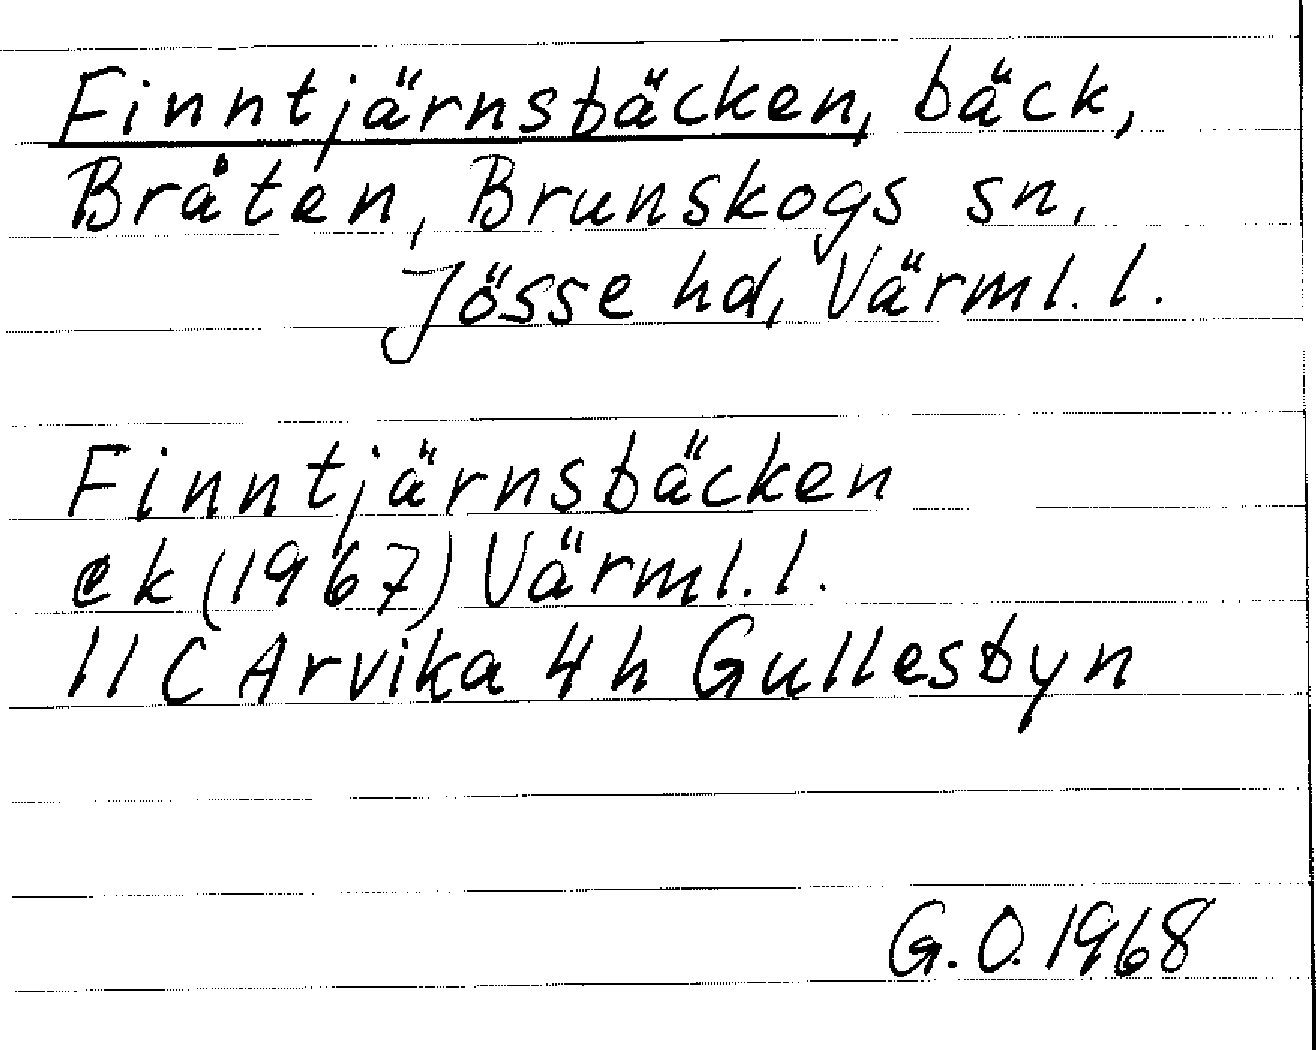 Finntjärnsbäcken, bäck,
Bråten, Brunskogs sn,
Jösse hd, Värml. l.
Finntjärnsbäcken
ek (1967) Värml. l.
11 C Arvika 4 h Gullesbyn
G. O. 1968